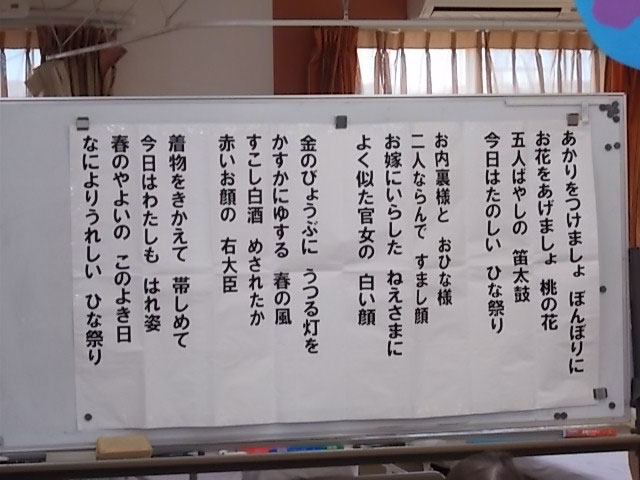 あかりをつけましょ　ぼんぼりに
お花をあげましょ　桃の花
五人ばやしの　笛太鼓
今日はたのしい　ひな祭り
お内裏様と　おひな様
二人ならんで　すまし顔
お嫁にいらした　ねえさまに
よく似た官女の　白い顔
金のびょうぶに　うつる灯を
かすかにゆする　春の風
すこし白酒　めされたか
赤いお顔の　右大臣
着物をきかえて　帯しめて
今日はわたしも　はれ姿
春のやよいの　このよき日
なによりうれしい　ひな祭り